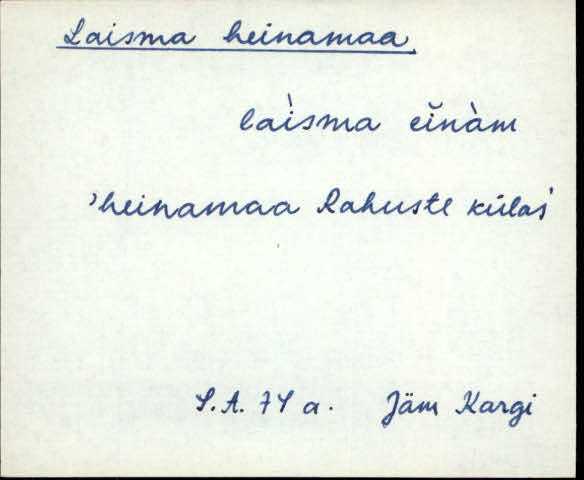 Laisma heinamaa
laìsma eĭnàm
'heinamaa Rahuste külas'
S.A. 74 a. Jäm Kargi